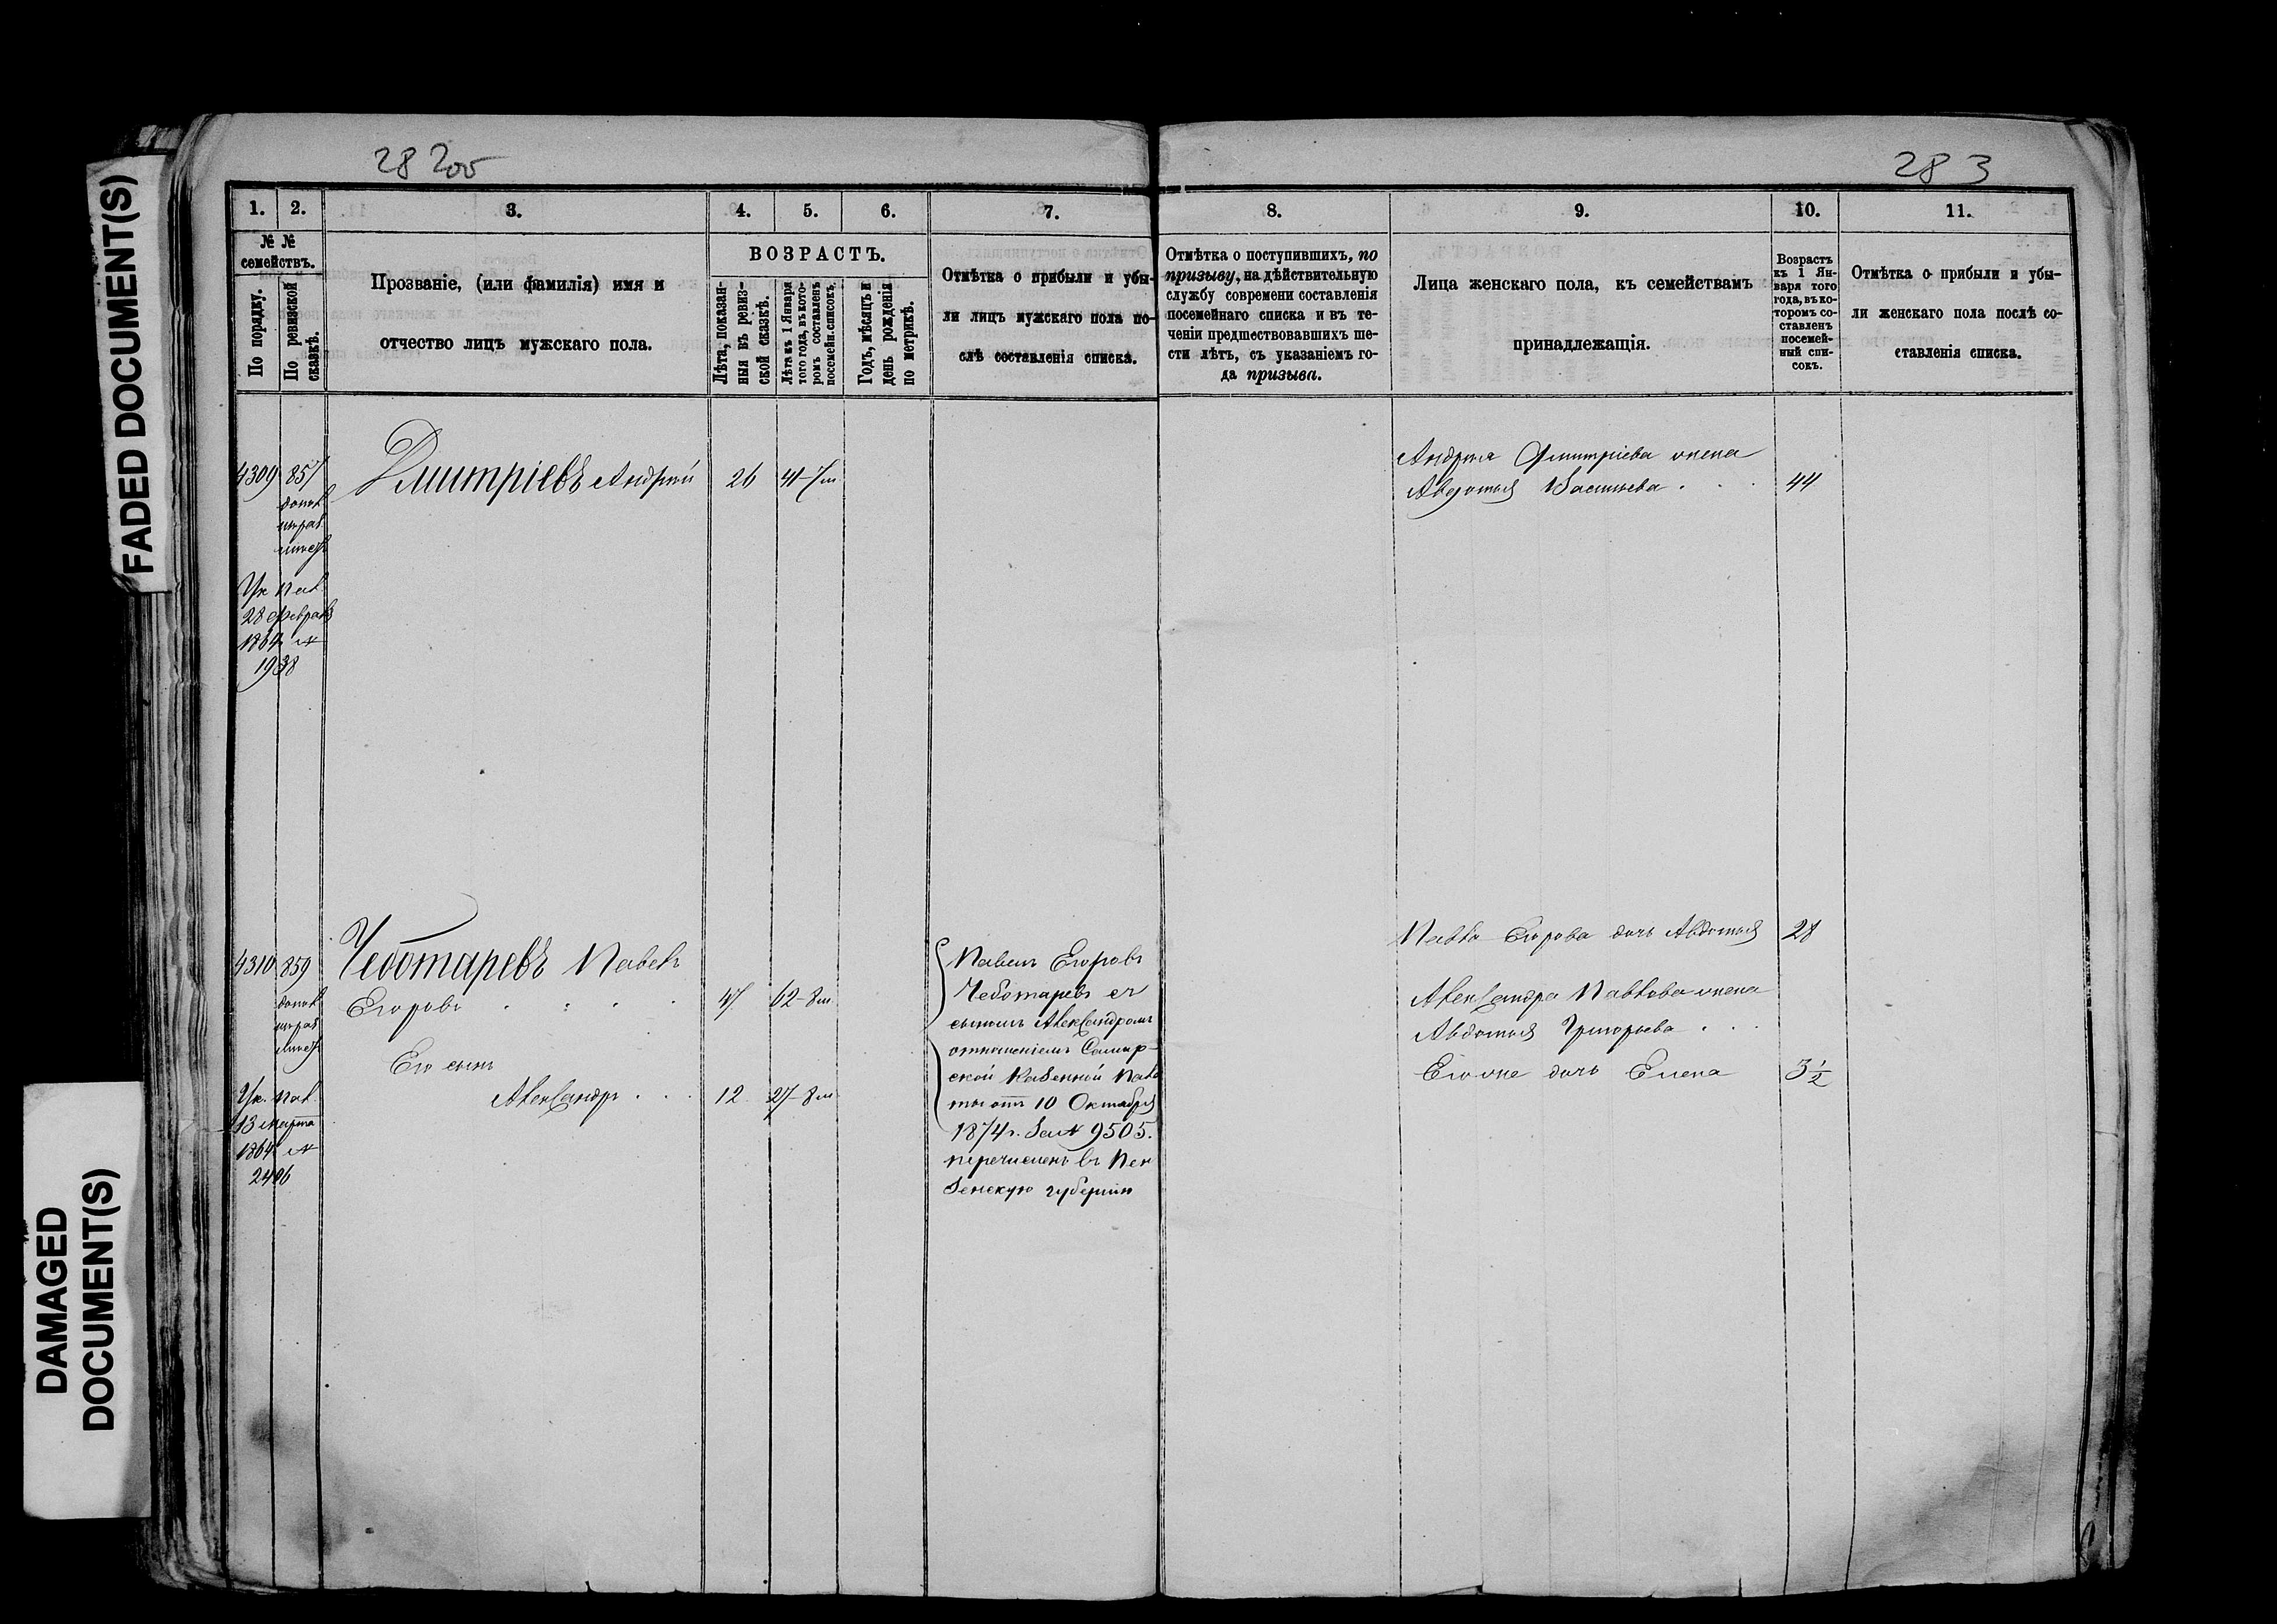 FAADED DOCUMENT(S)
DAMAGED
DOCUMENT(S)
28 2об
283
1.
2.
3.
4.
5.
6.
7.
8.
9.
10.
11.
№ №
семействъ.
По порядку.
По ревизской
сказкѣ.
Прозваніе, (или фамилія) имя и
отчество лицъ мужскаго пола.
ВОЗРАСТЪ.
Лѣта, показан-
ныя въ ревиз-
ской сказкѣ.
Лѣта къ 1 Января
того года, въ кото-
ромъ составленъ
посемейн. списокъ.
Годъ, мѣсяцъ и
день рожденія
по метрикѣ.
Отмѣтка о прибыли и убы-
ли лицъ мужскаго пола по-
слѣ составленія списка.
Отмѣтка о поступившихъ, по
призыву, на дѣйствительную
службу современи составленія
посемейнаго списка и въ те-
ченіи предшествовавшихъ ше-
сти лѣтъ, съ указаніемъ го-
да призыва.
Лица женскаго пола, къ семействамъ
принадлежащія.
Возрастъ
къ 1 Ян-
варя того
года, въ ко-
торомъ со-
ставленъ
посемей-
ный спи-
сокъ.
Отмѣтка о прибыли и убы-
ли женскаго пола послѣ со-
ставленія списка.
4309
857
Дмитріевъ Андрей
26
Андрея Дмитріева жена
Авдотья Васильева . . .
44
Ук пал
28 февраля
1864 №
1938
4310
859
Чеботаревъ Павелъ
Егоровъ . . . .
47
62-8м
Его сынъ
Александръ . . .
12
27-8м
Ук. пал
13 марта
1864 №
2406
Павелъ Егоровъ
Чеботаревъ съ
сыномъ Александромъ
отношеніемъ Самар-
ской Казенной Пала
ты отъ 10 Октября
1874г. за № 9505.
перечисленъ въ Пен
зенскую губернію
Павла Егорова дочь Авдотья
28
Александра Павлова жена
Авдотья Григорьева . . .
Его же дочь Елена
3½